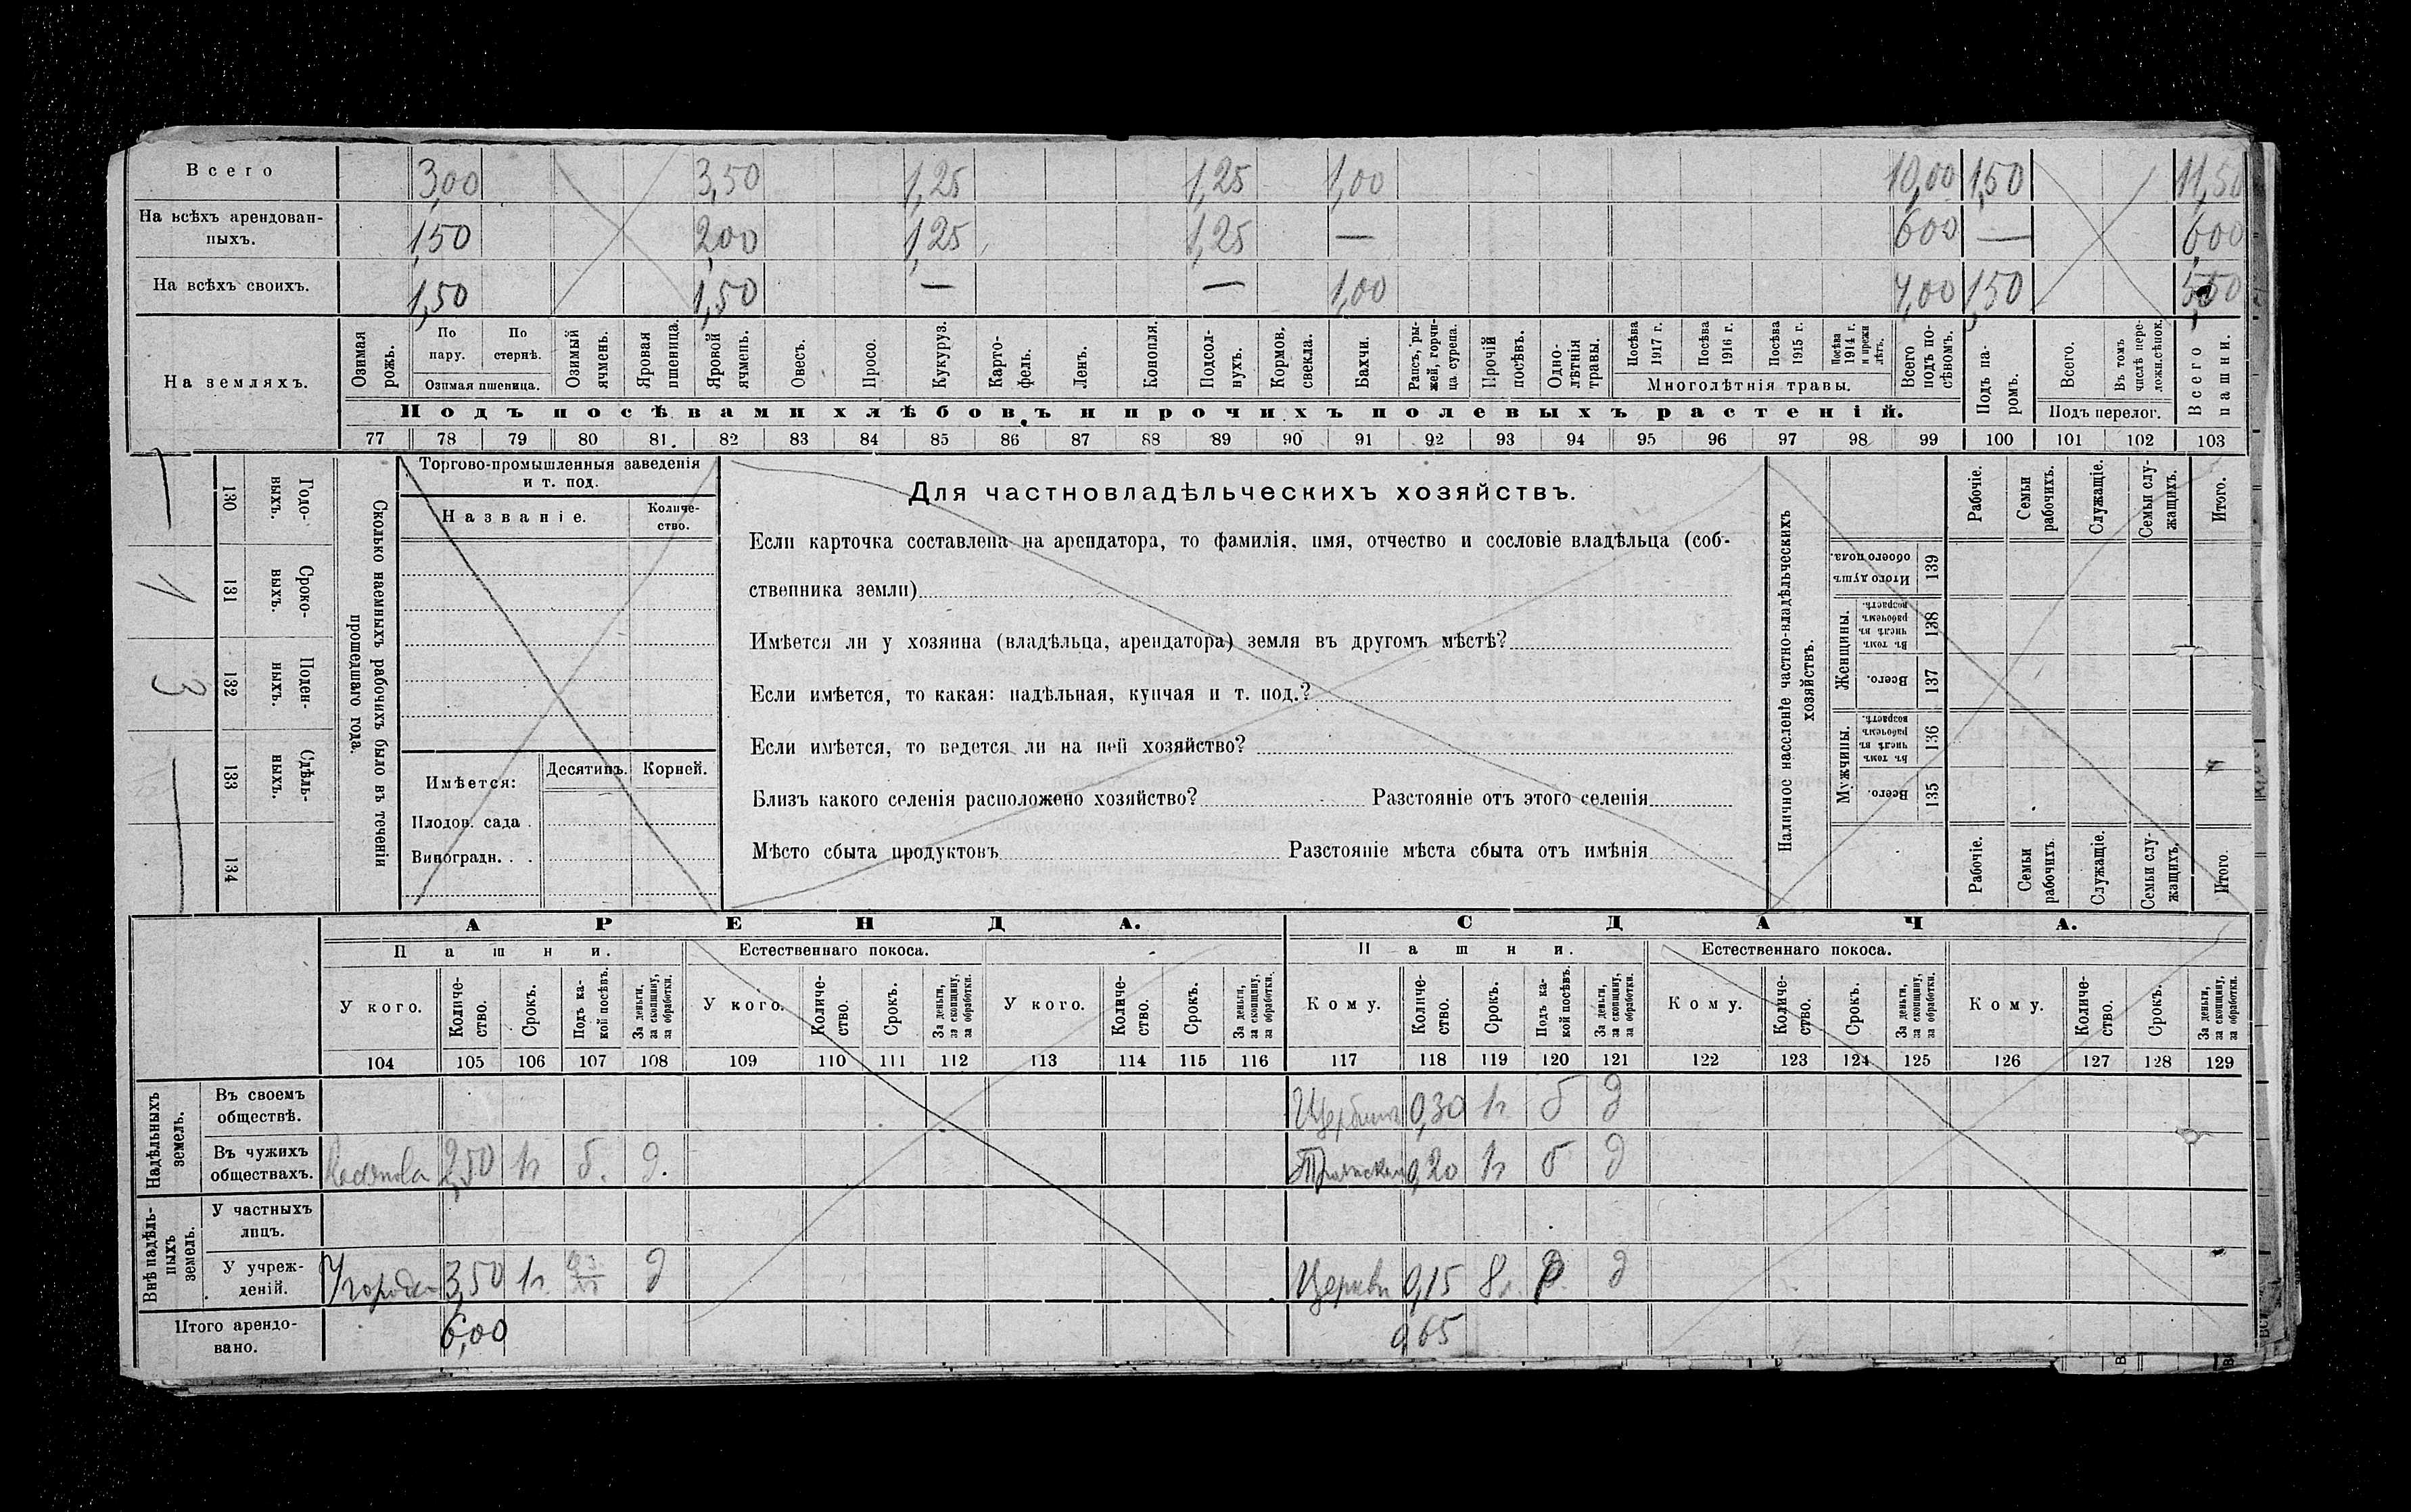 Всего 3,00 3,50 1,25 1,25 1,00 10,00 1,50 11,50
На всѣхъ арендован-
ныхъ. 1,50 2,00 1,25 1,25 — 6,00 — 6,00
На всѣхъ своихъ. 1,50 1,50 — — 1,00 4,00 1,50 5,50
На земляхъ.
Озимая рожь.
По пару.
По стернѣ.
Озимая пшеница.
Озимый ячмень.
Яровая пшеница.
Яровой ячмень.
Овесъ.
Просо.
Кукуруз.
Карто-
фель.
Ленъ.
Конопля.
Подсол-
нухъ.
Кормов.
свекла.
Бахчи.
Рапсъ, ры-
жей, горчи-
ца сурепа.
Прочій посѣвъ.
Одно-
лѣтнія травы.
Посѣва 1917 г.
Посѣва 1916 г.
Посѣва 1915 г.
Посѣва 1914 г. и прежн лѣтъ.
Многолѣтнія травы.
Всего подъ по-
сѣвомъ.
Подъ па-
ромъ.
Всего.
Въ томъ числѣ пере-
ложн.сѣнок.
Подъ перелог.
Всего пашни.
Подъ посѣвами хлѣбовъ и прочихъ полевыхъ растеній.
77 78 79 80 81. 82 83 84 85 86 87 88 89 90 91 92 93 94 95 96 97 98 99 100 101 102 103
— 130 Годо-
выхъ.
1 131 Сроко-
выхъ.
3 132 Поден-
ныхъ.
— 133 Сдѣль-
ныхъ.
134
Сколько наемныхъ рабочихъ было въ теченіи
прошедшаго года.
Торгово-промышленныя заведенія
и т. под.
Названіе.
Количе-
ство.
Имѣется: Десятинъ. Корней.
Плодов. сада .
Виноградн. . .
Для частновладѣльческихъ хозяйствъ.
Если карточка составлена на арендатора, то фамилія, имя, отчество и сословіе владѣльца (соб-
ственника земли)
Имѣется ли у хозяина (владѣльца, арендатора) земля въ другомъ мѣстѣ?
Если имѣется, то какая: надѣльная, купчая и т. под.?
Если имѣется, то ведется ли на ней хозяйство?
Близъ какого селенія расположено хозяйство? Разстояніе отъ этого селенія
Мѣсто сбыта продуктовъ Разстояніе мѣста сбыта отъ имѣнія
Наличное населеніе частно-владѣльческихъ
хозяйствъ.
Рабочіе.
Семьи рабочихъ.
Служащіе.
Семьи слу-
жащихъ.
Итого.
Итого душъ обоего пола. 139
Женщины.
Въ томъ числѣ въ рабочемъ возрастѣ. 138
Всего. 137
Мужчины.
Въ томъ числѣ въ рабочемъ возрастѣ. 136
Всего. 135
Рабочіе.
Семьи рабочихъ.
Служащіе.
Семьи слу-
жащихъ.
Итого.
АРЕНДА. СДАЧА.
Пашни. Естественнаго покоса. Пашни. Естественнаго покоса.
У кого.
Количе-
ство.
Срокъ.
Подъ ка-
кой посѣвъ.
За деньги, за скопщину, за обработки.
У кого.
Количе-
ство.
Срокъ.
За деньги, за скопщину, за обработки.
У кого.
Количе-
ство.
Срокъ.
За деньги, за скопщину, за обработки.
Кому.
Количе-
ство.
Срокъ.
Подъ ка-
кой посѣвъ.
За деньги, за скопщину, за обработки.
Кому.
Количе-
ство.
Срокъ.
За деньги, за скопщину, за обработки.
Кому.
Количе-
ство.
Срокъ.
За деньги, за скопщину, за обработки.
104 105 106 107 108 109 110 111 112 113 114 115 116 117 118 119 120 121 122 123 124 125 126 127 128 129
Надѣльныхъ
земель.
Въ своемъ
обществѣ. 0,30 б д
Въ чужихъ
обществахъ. 2,50 б. д. 0,20 б д
Внѣ надѣль-
ныхъ
земель.
У частныхъ
лицъ.
У учреж-
деній. 3,50 д Церкви 0,15 8 д
Итого арендо-
вано. 6,00 0,65